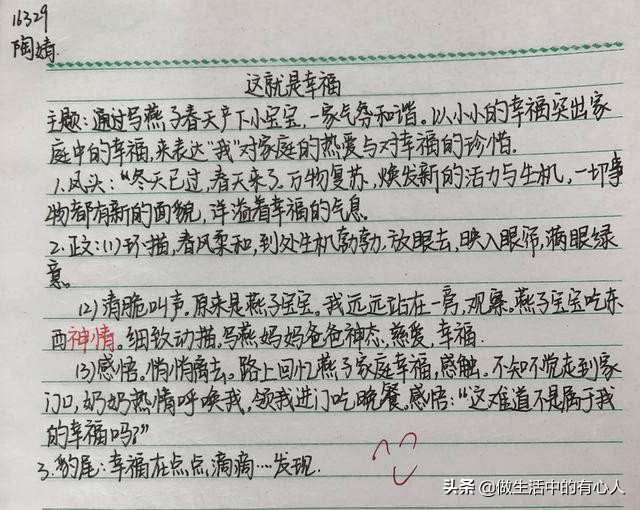 16329
陶婧
这就是幸福
主题：通过写燕子春天产下小宝宝，一家气氛和谐。以小小的幸福突出家
庭中的幸福，来表达“我”对家庭的热爱与对幸福的珍惜。
1.凤头：“冬天已过，春天来了。万物复苏，焕发新的活力与生机，一切事
物都有新的面貌，洋溢着幸福的气息。
2.正文：(1)环描，春风柔和，到处生机勃勃。放眼去，映入眼帘，满眼绿
意。
(2)清脆叫声。原来是燕子宝宝。我远远站在一旁，观察。燕子宝宝吃东
西神情。细致动描，写燕妈妈爸爸神态，慈爱，幸福.
(3)感悟。悄悄离去。路上回忆燕子家庭幸福，感触。不知不觉走到家
门口，奶奶热情呼唤我，领我进门吃晚餐。感悟：“这难道不是属于我
的幸福吗？”
3.豹尾：幸福在点点滴滴…发现.
头条 @做生活中的有心人